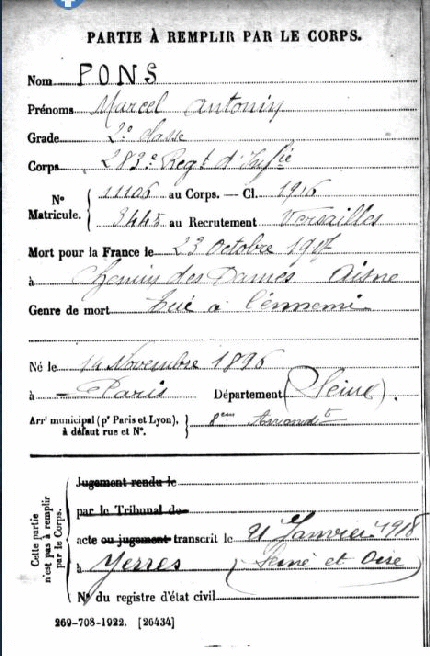 PARTIE À REMPLIR PAR LE CORPS.
Nom PONS
Prénoms Marcel Antonin
Grade 2e classe
Corps 289e Regt d'Infie
No 11106 au Corps. — Cl. 1916
Matricule. 3445 au Recrutement Versailles
Mort pour la France le 23 Octobre 1917
à Chemin des Dames Aisne
Genre de mort tué à l'ennemi
Né le 14 Novembre 1896
à Paris Département (Seine).
Arrt municipal (pr Paris et Lyon), 8eme Arrondt
à défaut rue et No.
Cette partie n'est pas à remplir par le Corps.
Jugement rendu le
par le Tribunal de
acte ou jugement transcrit le 21 Janvier 1918
à Yerres (Seine et Oise)
No du registre d'état civil
269-708-1922. [26434]